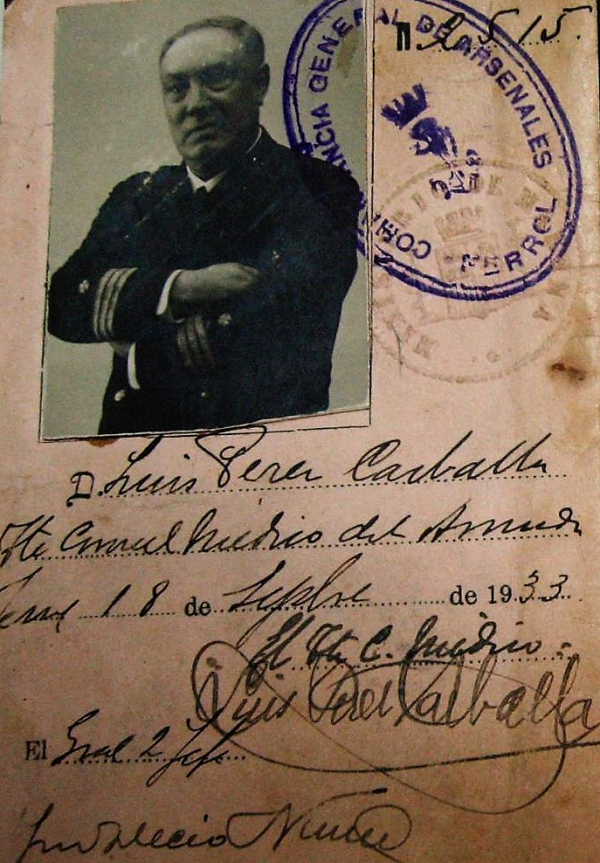 n. 2515.
COMANDANCIA GENERAL DE ARSENALES
FERROL
D. Luis Perez Carballa
Tte Coronel Médico del Armada
18 de Sepbre de 1933
El Tte C. Médico.
Luis Perez Carballa
El Gral 2º Jefe
Indalecio Núñez